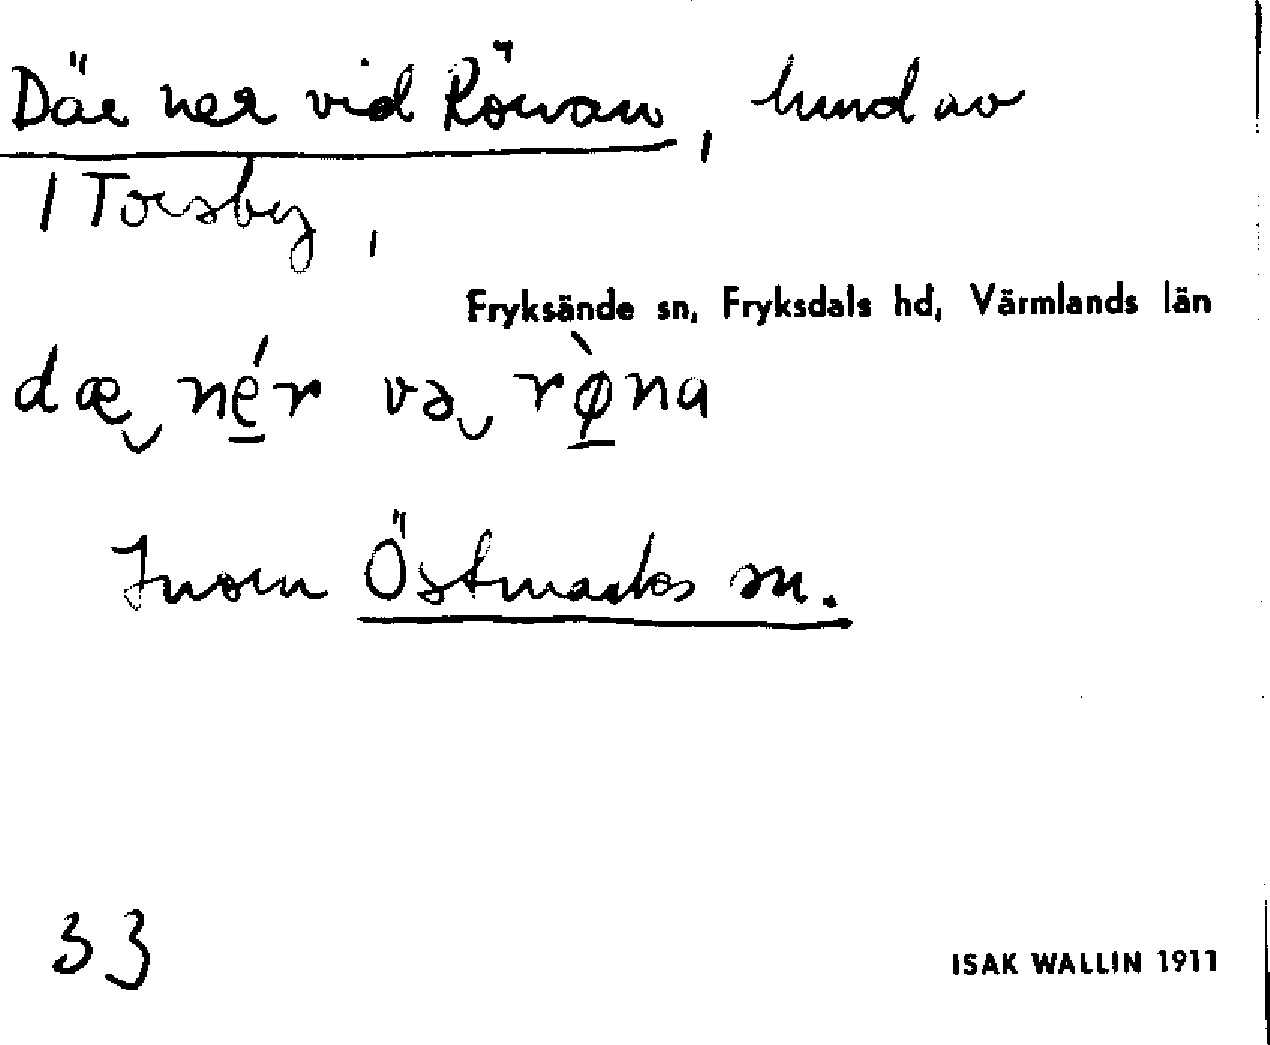 Där ner vid Rönan, hund av
1 Torsby,
Fryksände sn, Fryksdals hd, Värmlands län
dæ‿ nẹ́r və‿ rø̀na
Inom Östmarks sn.
33
ISAK WALLIN 1911